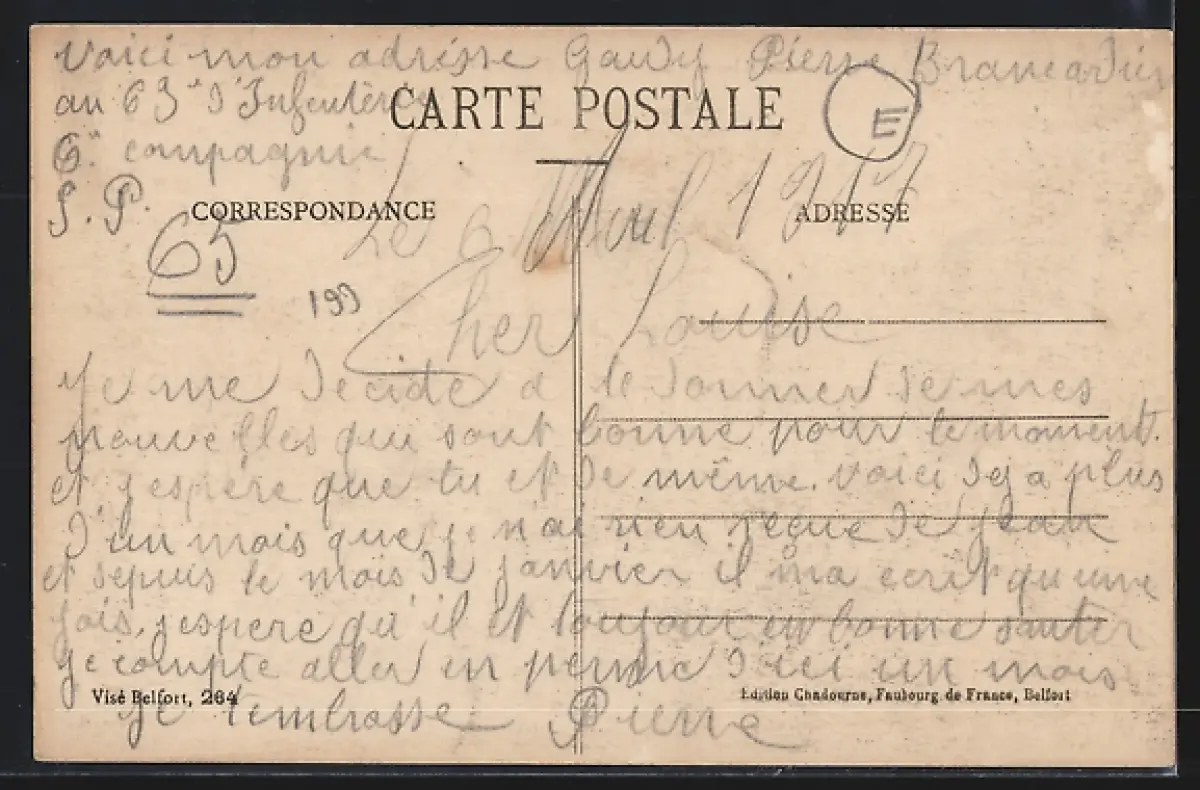 Voici mon adresse Gaudy Pierre Brancadier
au 63e d'Infentèrie
CARTE POSTALE
E
6e compagnie
S. P.
CORRESPONDANCE
ADRESSE
65
Le 6 Avril 1917
199
Cher Louise
Je me decide a te donner de mes
nouvelles qui sont bonne pour le moment.
et j'espère que tu et de même. voici deja plus
d'un mois que je n'ai rien reçue de jean
et depuis le mois de janvier il ma ecrit qu'une
fois, j'espere qu'il et toujour en bonne santer
je compte aller en perme d'ici un mois
Visé Belfort, 264
Edition Chadourne, Faubourg de France, Belfort
je t'embrasse Pierre